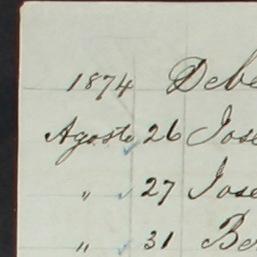 1874 Debe
Agosto 26 Jose
" 27 Jose
" 31 Be